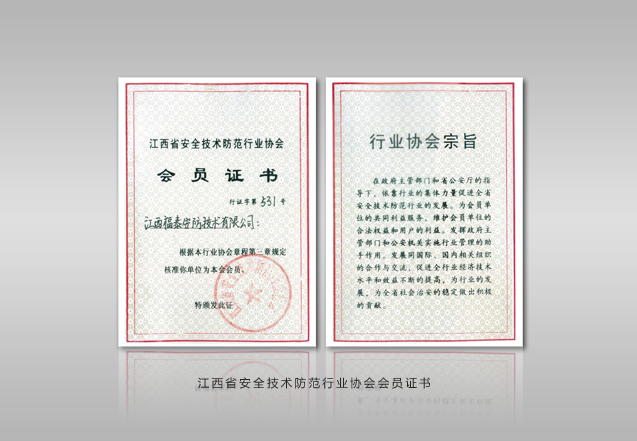 江西省安全技术防范行业协会
会员证书
行证字第 531 号
江西福泰安防技术有限公司：
根据本行业协会章程第三章规定
核准你单位为本会会员。
特颁发此证
行业协会宗旨
在政府主管部门和省公安厅的指
导下，依靠行业的集体力量促进全省
安全技术防范行业的发展。为会员单
位的共同利益服务，维护会员单位的
合法权益和用户的利益。发挥政府主
管部门和公安机关实施行业管理的助
手作用。发展同国际、国内相关组织
的合作与交流，促进全行业经济技术
水平和效益不断的提高，为行业的发
展，为全省社会治安的稳定做出积极
的贡献。
江西省安全技术防范行业协会会员证书